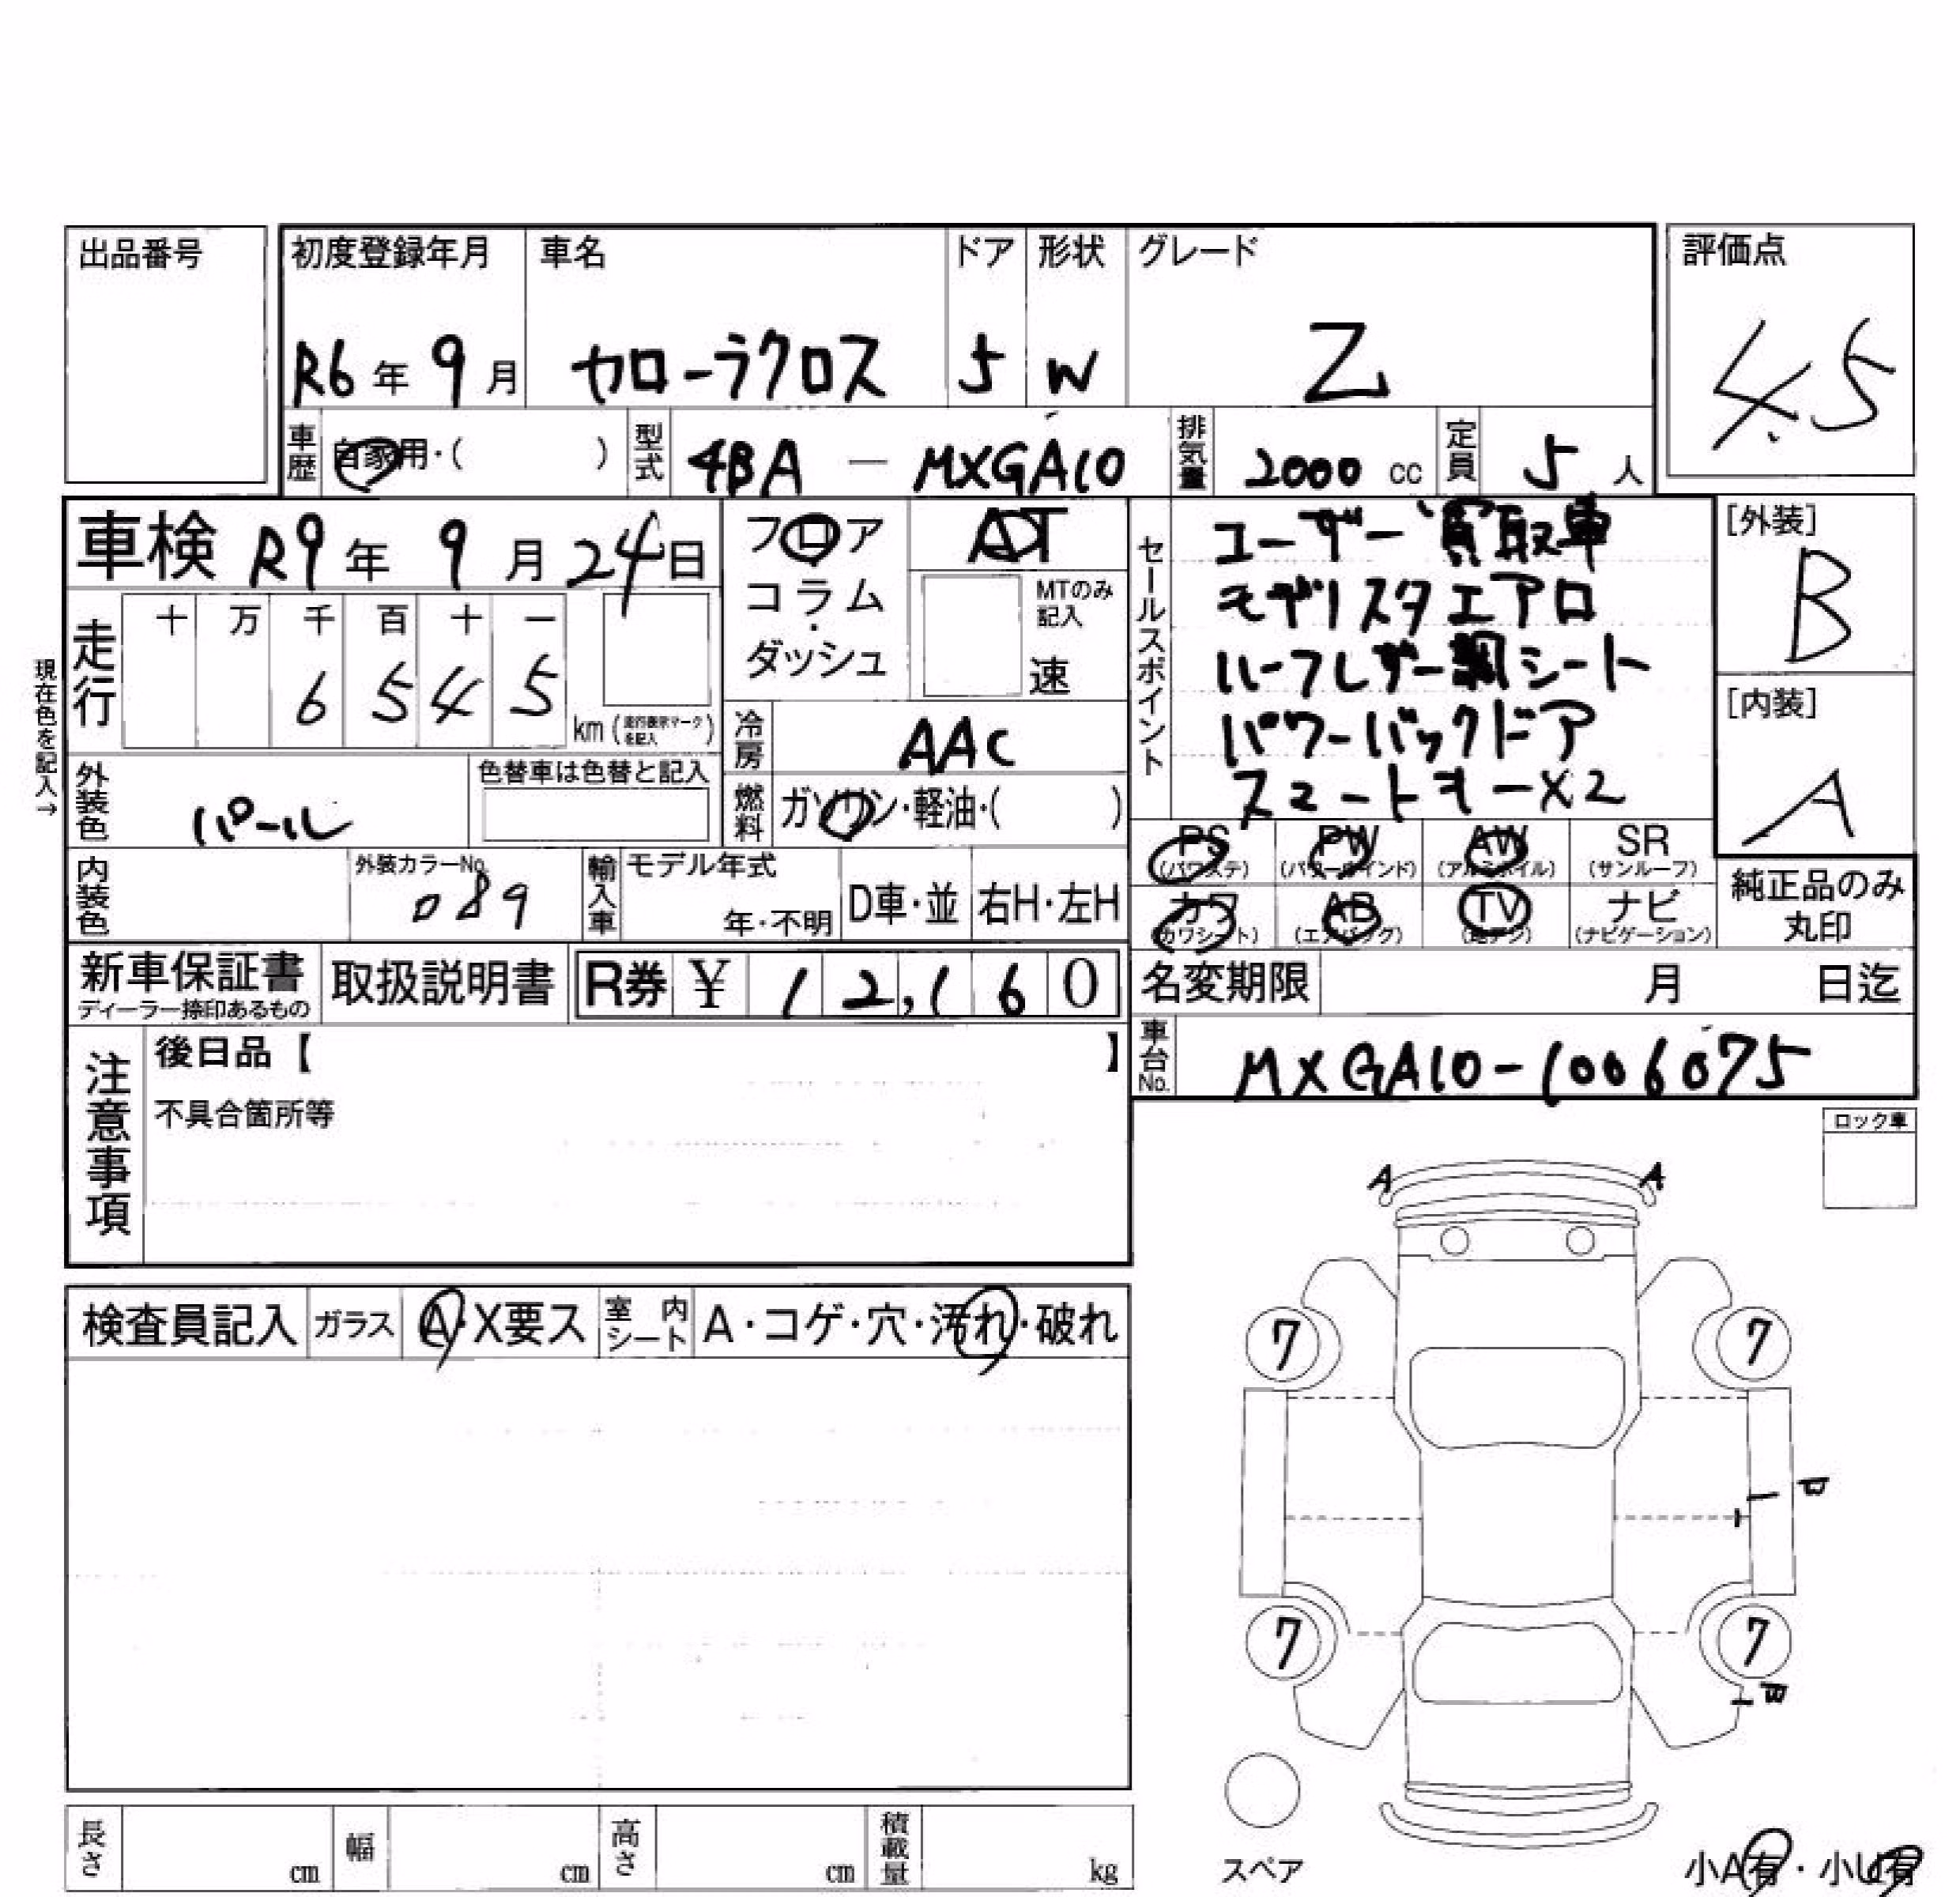 出品番号
初度登録年月 車名 ドア 形状 グレード 評価点
R6年 9月 カローラクロス 5 W Z 4.5
車歴 自家用・( ) 型式 4BA - MXGA10 排気量 2000 cc 定員 5 人
車検 R9年 9月 24日
フロア AT
コラム・
ダッシュ
MTのみ記入
速
走行 十 万 千 百 十 一
6 5 4 5 km (走行表示マークを記入)
現在色を記入→
冷房 AAC
外装色 パール 色替車は色替と記入
燃料 ガソリン・軽油・( )
内装色 外装カラーNo. 089
輸入車 モデル年式 年・不明 D車・並 右H・左H
セールスポイント
ユーザー買取車
モデリスタエアロ
ハーフレザー調シート
パワーバックドア
スマートキーX2
[外装]
B
[内装]
A
PS (パワステ) PW (パワーウインド) AW (アルミホイル) SR (サンルーフ)
カワ (カワシート) AB (エアバッグ) TV (地デジ) ナビ (ナビゲーション)
純正品のみ
丸印
新車保証書 ディーラー捺印あるもの 取扱説明書 R券 ¥ 12,160
名変期限 月 日迄
車台No. MXGA10-1006075
注意事項
後日品【 】
不具合箇所等
ロック車
A A
検査員記入 ガラス A・X要ス 室内シート A・コゲ・穴・汚れ・破れ
7 7
7 7
スペア
小A有・小U有
長さ cm 幅 cm 高さ cm 積載量 kg